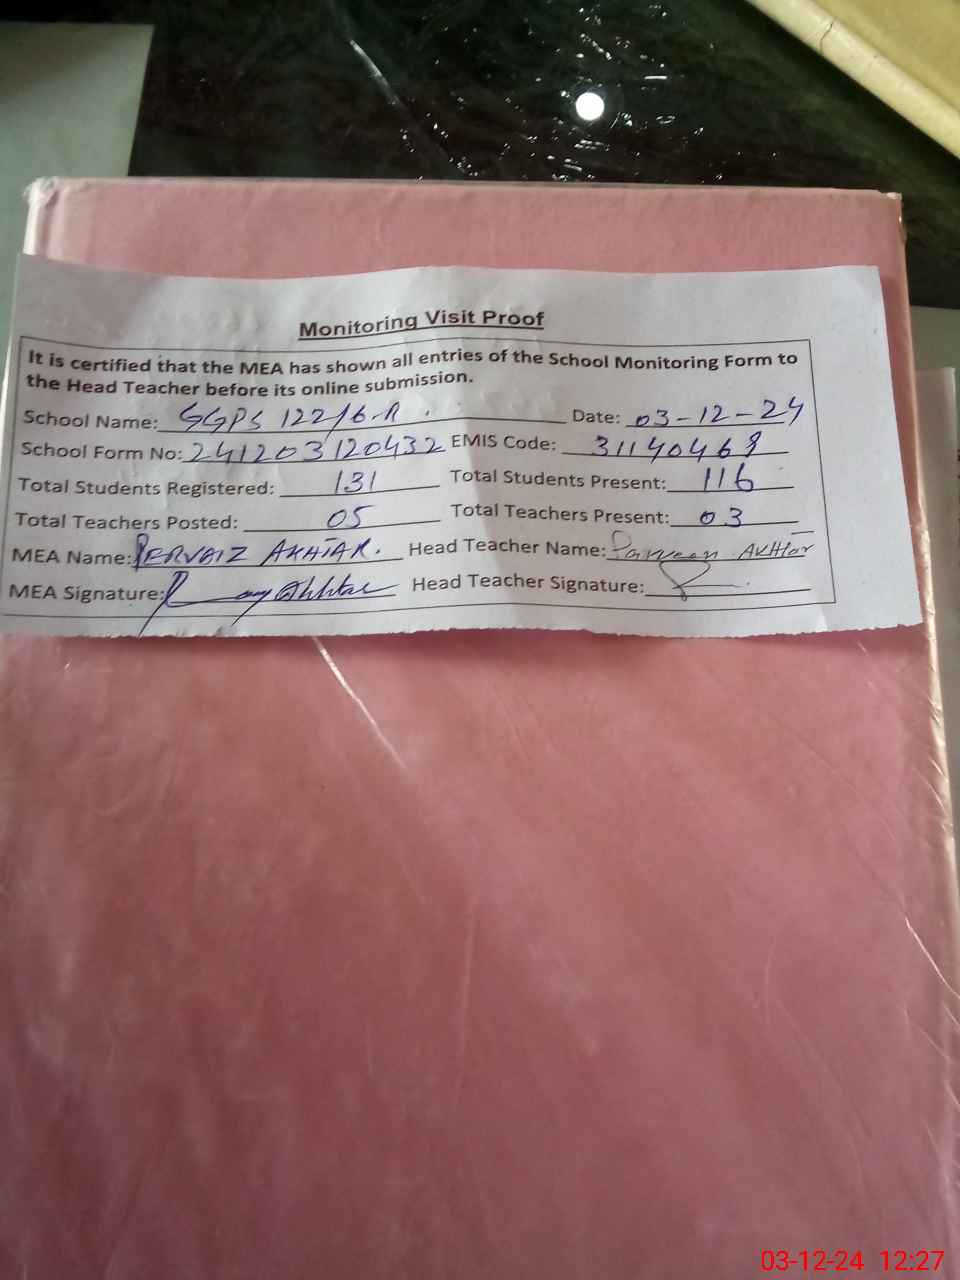 Monitoring Visit Proof
It is certified that the MEA has shown all entries of the School Monitoring Form to
the Head Teacher before its online submission.
School Name: GGPS 122/6-R . Date: 03-12-24
School Form No: 241203120432 EMIS Code: 31140469
Total Students Registered: 131 Total Students Present: 116
Total Teachers Posted: 05 Total Teachers Present: 03
MEA Name: PERVAIZ AKHTAR. Head Teacher Name: Parveen AKHtar
MEA Signature: Head Teacher Signature:
03-12-24 12:27